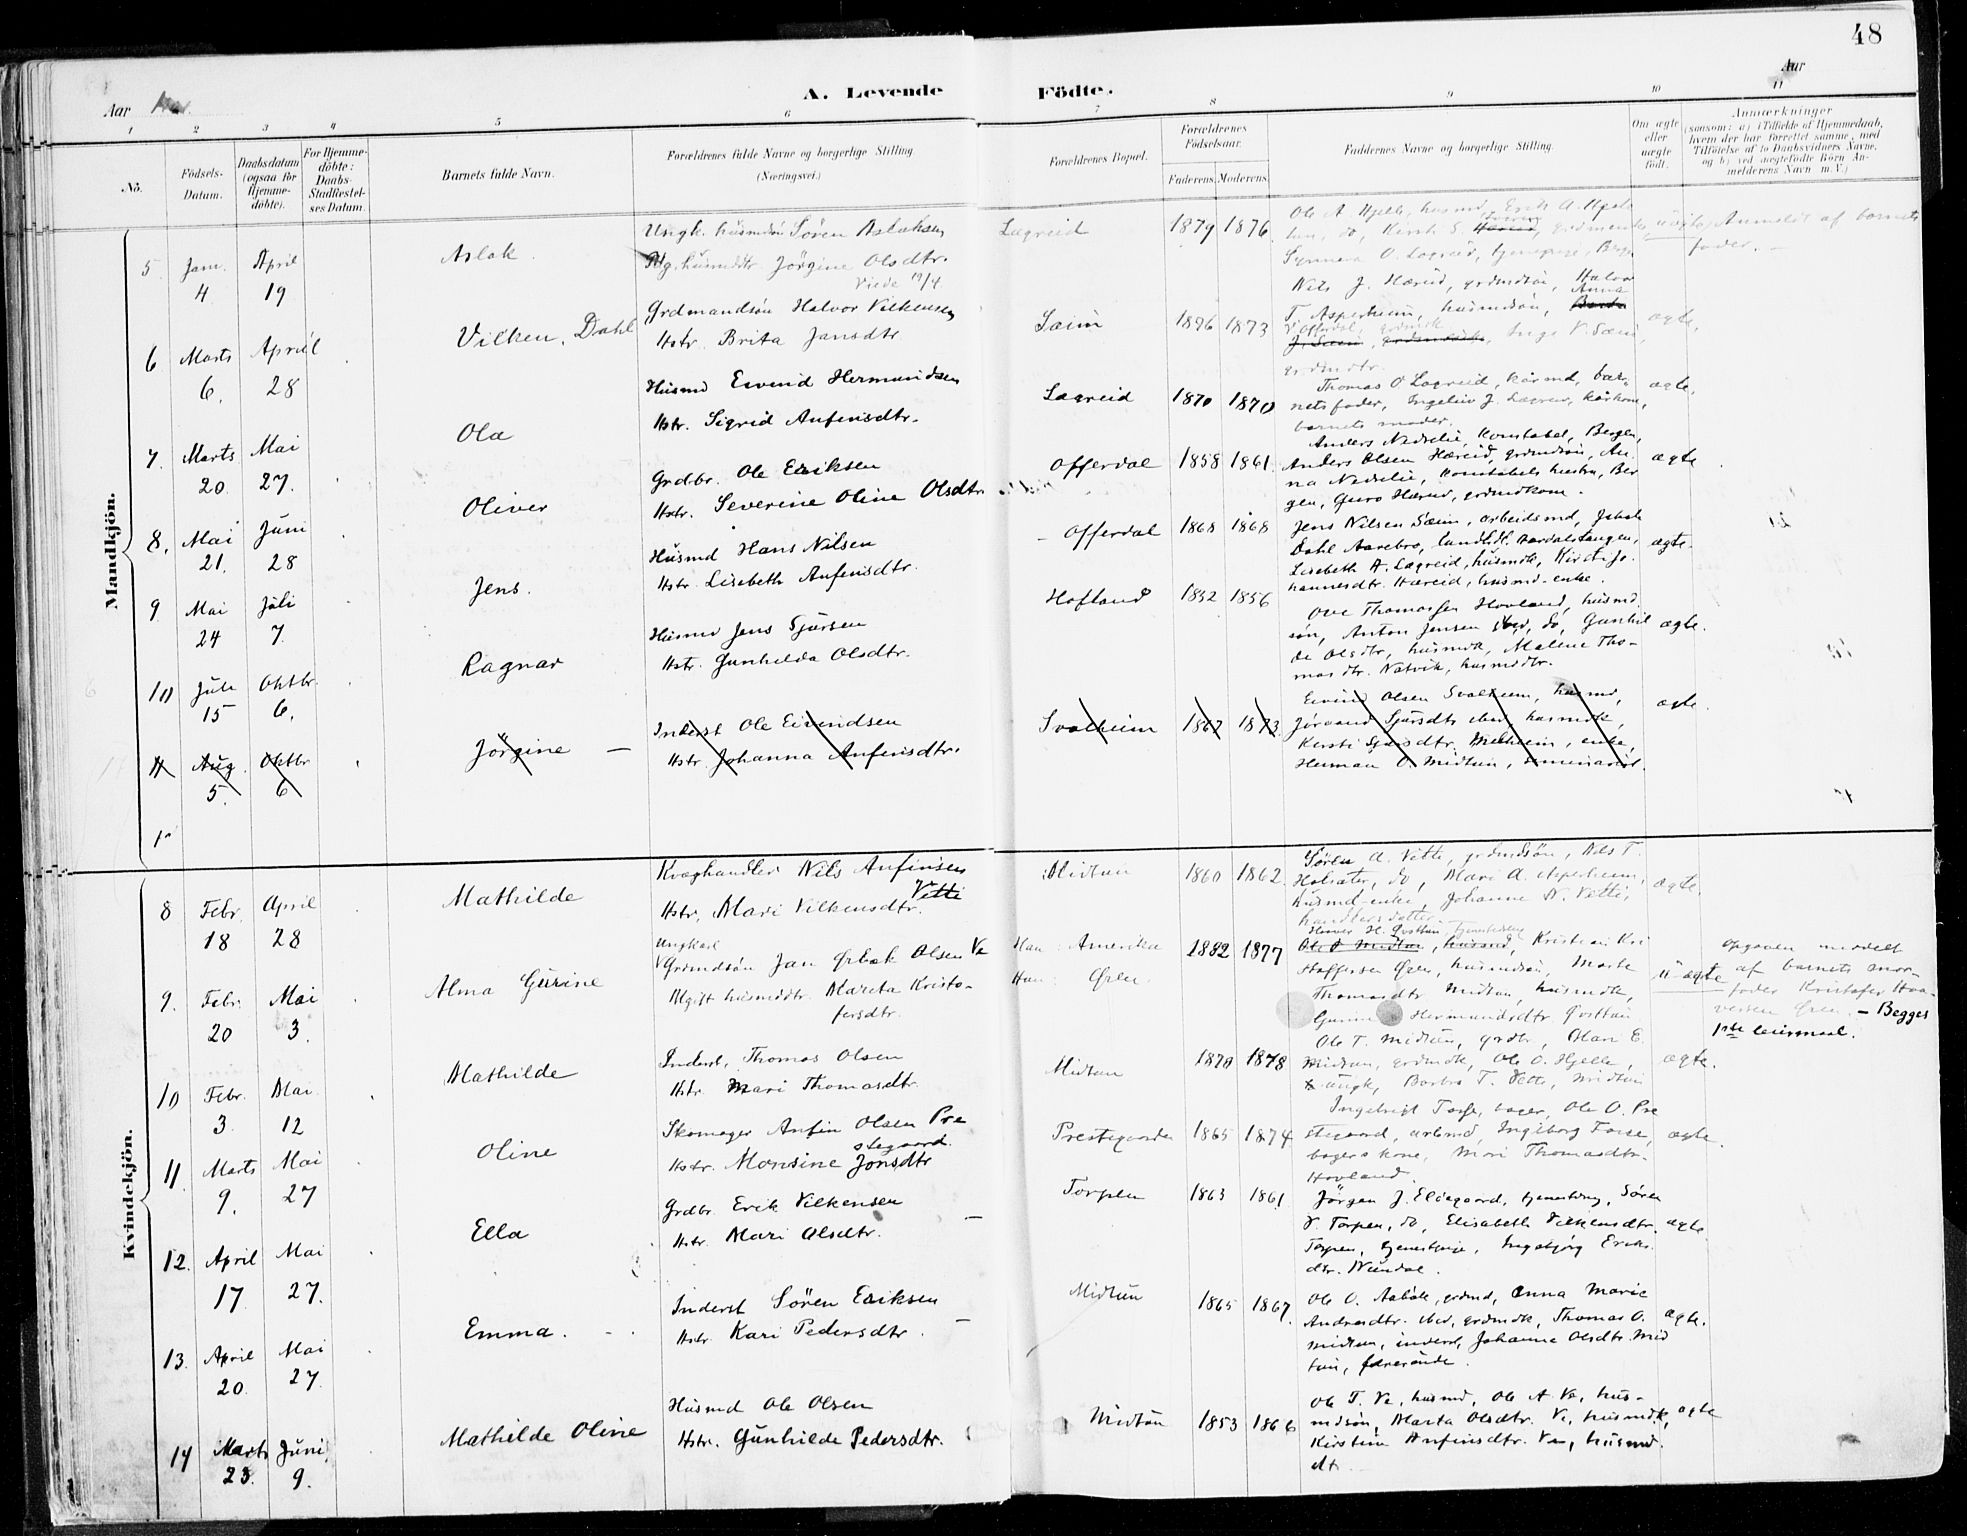 48
Aar
A. Levende Födte.
Aar
1 2 3 4 5 6 7 8 9 10 11
Nö.
Födsels-Datum.
Daabsdatum (ogsaa for Hjemme-döbte).
For Hjemme-döbte: Daabs-Stadfæstel-ses Datum.
Barnets fulde Navn.
Forældrenes fulde Navne og borgerlige Stilling.
(Næringsvei.)
Forældrenes Bopæl.
Forældrenes Födselsaar.
Faderens. Moderens.
Faddernes Navne og borgerlige Stilling.
Om ægte eller uægte födt.
Anmærkninger
(saasom: a) i Tilfælde af Hjemmedaab, hvem der har forrettet samme, med Tilföielse af to Daabsvidners Navne, og b) ved uægtefödte Börn An-melderens Navn m. V.)
Mandkjön.
5 Jan. 4 April 19
Aslak.
Ungk. husmdsön Sören Aslaksen
Pig. husmddtr. Jörgine Olsdtr.
Viede 19/4
Lægreid 1879 1876
Ole A. Hjelle, husmd, Erik A. Hjelle
Synneva O. Lægreid, tjenepige, Berg
uægte Anmeldt af barnets
fader. –
6 Marts 6. April 28
Vilken. Dahl
Grdmandsön Halvor Vilkensen
Hstr. Brita Jansdtr.
Sæim 1876 1873
Nils J. Hæreid, grdmdsön, Halvor
T. Asperheim, husmdsön, Anna
V Offerdal, grdmdk
Inga V. Sæim,
grdmdtr.
ægte.
7. Marts 20. Mai 27.
Ola
Husmd Eivind Hermundsen
Hstr. Sigrid Anfinsdtr.
Lægreid 1870 1870
Thomas O Lægreid, kårmd, bar-
netsfader, Ingeleiv J. Lægreid, kårkone,
barnets moder.
ægte.
8. Mai 21. Juni 28
Oliver
Grdbr. Ole Eriksen
Hstr. Severine Oline Olsdtr
Offerdal 1858 1861
Anders Nedrelie, Konstabel, Bergen,
Anders Olsen Hæreid, grdmdsön, An-
na Nedrelie, Konstabels hustru, Ber
gen, Guro Hæreid, grdmdkone.
ægte
9 Mai 24 Juli 7.
Jens.
Husmd Hans Nilsen
Hstr. Lisebeth Anfinsdtr.
Offerdal 1868 1868
Jens Nilsen Sæim, arbeidsmd, Jakob
Dahl Aarebro, landhdl. Aardalstangen,
Lisebeth A. Lægreid, husmdk, Kirsti Jo-
hannesdtr. Hæreid, husmd-enke.
ægte.
10 Juli 15 Oktbr. 6.
Ragnar
Husmd Jens Sjursen
Hstr. Gunhilda Olsdtr.
Hofland 1852 1856
Ole Thomassen Hovland, husmd
sön, Anton Jensen ibid, do, Gunhil
de Olsdtr, husmdk, Malene Tho-
masdtr. Natvik, husmddtr.
ægte.
11 Aug. 5. Oktbr 6
Jörgine –
Inderst Ole Eivindsen
Hstr. Johanna Anfinsdtr.
Svalheim 1867 1873
Eivind Olsen Svalheim, husmd,
Jörand Sjursdtr ibid, husmdk,
Kersti Sjursdtr. Midheim, enke,
Herman O. Midtun, seminarist.
ægte.
Kvindekjön.
8 Febr. 18 April 28
Mathilde
Kræghandler Nils Anfinsen
Vetti
Hstr. Mari Vilkensdtr.
Midtun 1860 1862
Sören A. Vette, grdmdsön, Nils T.
Holsæter, do, Mari A. Asperheim,
husmd-enke, Johanne N. Vetti,
handlersdatter.
ægte.
9. Febr. 20 Mai 3.
Alma Gurine
Ungkarl
Grdmdsön Jan Örbæk Olsen Ve
Ugift husmddtr. Marita Kristo-
fersdtr.
Han: Amerika
Hun: Øren
1882 1877
Ole O Midtun, husmd, Kristian Kri
stoffersen Øren, husmdsön, Marta
Thomasdtr Midtun, husmdk,
Gurine Hermundsdtr Qvattun
uægte
opgaven meddelt
af barnets mor-
fader Kristofer Haa-
versen Øren. – Begges
1ste leiermaal.
10 Febr. 3. Mai 12
Mathilde
Inderst, Thomas Olsen
Hstr. Mari Thomasdtr
Midtun 1870 1878
Ole T. Midtun, grdbr, Olan E.
Midtun, grdmdk, Ole O. Hjelle,
ungk, Barbro T. Vette, Midtun
ægte.
11. Marts 9. Mai 27
Oline
Skomager Anfin Olsen Pre
stegaard.
Hstr. Monsine Jonsdtr
Prestegaarden 1865 1874
Ingebrigt Torse, bager, Ole O. Pre
stegaard, arbmd, Ingeborg Torse,
bagers kone, Mari Thomasdtr.
Hovland.
ægte.
12. April 17 Mai 27.
Ella
Grdbr. Erik Vilkensen
Hstr. Mari Olsdtr.
Torpen 1863 1861
Jörgen J. Eldegaard, tjenestedr., Sören
V. Torpen, do, Elisabeth Vilkensdtr.
Torpen, tjenestpige, Ingebjörg Eriks
dtr. Nundal.
ægte
13. April 20. Mai 27.
Emma.
Inderst Sören Eriksen
Hstr. Kari Pedersdtr.
Midtun 1865 1867.
Ole O. Aabøle, grdmd, Anna Marie
Andreasdtr. ibid, grdmdk, Thomas O.
Midtun, inderst, Johanne Olsdtr. Mid
tun, faarerinde.
ægte.
14 Marts 23. Juni 9.
Mathilde Oline
Husmd Ole Olsen
Hstr. Gunhilde Pedersdtr.
Midtun 1853 1866
Ole T. Ve, husmd, Ole A Ve, hus-
mdsön, Marta Olsdtr. Ve, husmdk,
Kirstine Anfinsdtr. Ve, husmd.
dtr.
ægte